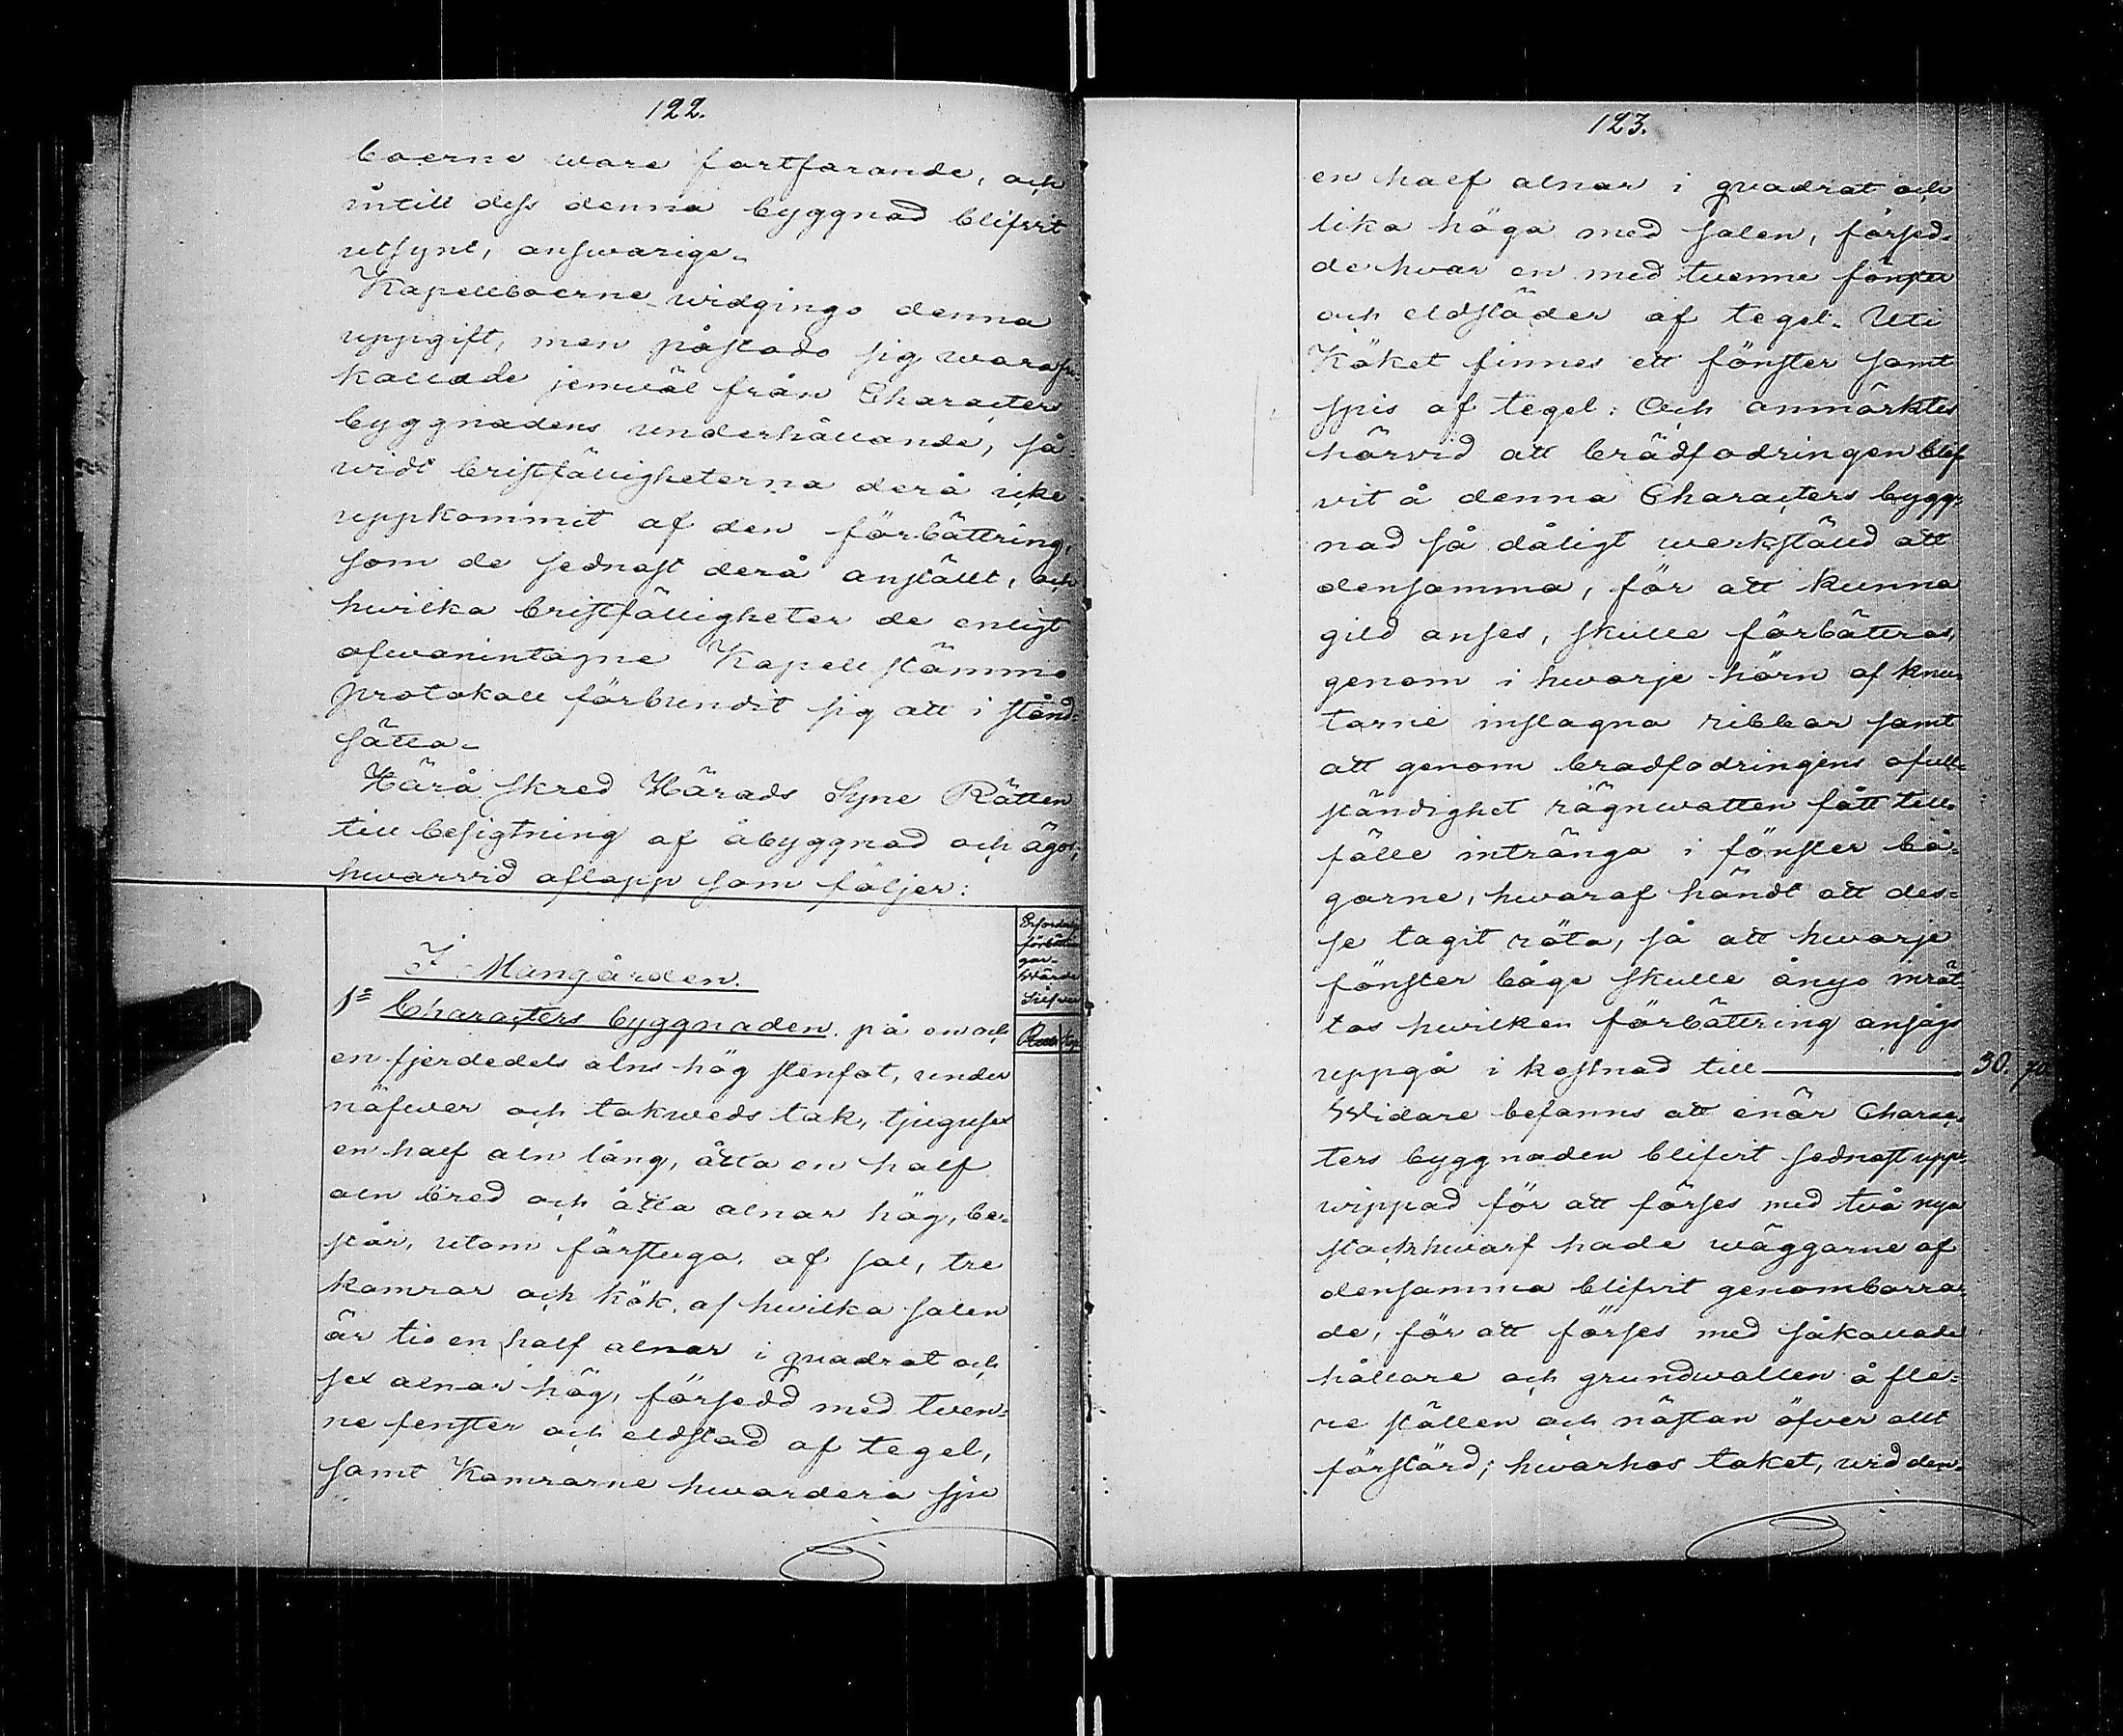 122.
boerne wore fortfarande, och
intill dess denna byggnad blifvit
utsynt, answarige.
Kapellboerne widgingo denna
uppgift, men påstodo sig wara fri-
kallade jemwäl från Characters
byggnadens underhållande, så-
widt bristfälligheterna derå icke
uppkommit af den förbättring,
som de sednast derå anställt, och
hwilka bristfälligheter de enligt
ofwanintagne Kapell stämmo
protokoll förbundit sig att i stånd-
sätta.
Härå skred Härads Syne Rätten
till besigtning af åbyggnad och ägor,
hwarvid aflopp som följer:
Erforderlige
förbättrin
gar-
Wärde
Silfver
Rub. Kop.
I Mangården.
1º Characters byggnaden, på en och
en fjerdedels alns hög stenfot, under
näfwer och takweds tak, tjugusex
en half aln lång, åtta en half
aln bred och åtta alnar hög, be-
står, utom förstuga, af sal, tre
kamrar och kök, af hwilka salen
är tio en half alnar i quadrat och
sex alnar hög, försedd med twen-
ne fenster och eldstad af tegel,
samt Kamrarne hwardera sju
123.
en half alnar i quadrat och
lika höga med salen, försed-
de hvar en med tvenne fönster
och eldstäder af tegel. Uti
Köket finnes ett fönster samt
spis af tegel: Och anmärktes
härvid att brädfodringen blif
vit å denna Characters bygg-
nad så dåligt werkställd att
densamma, för att kunna
gild anses, skulle förbättras,
genom i hwarje hörn af knu-
tarne inslagna ribbor samt
att genom bradfodringens ofull-
ständighet rägnwatten fått till-
fälle intränga i fönster bå-
garne, hwaraf händt att des-
se tagit röta, så att hwarje
fönster båge skulle ånyo inrät-
tas hwilken förbättring ansågs
uppgå i kostnad till 30.
Widare befanns att enär Charac-
ters byggnaden blifvit sednast upp-
wippad för att förses med två nya
stockhwarf hade wäggarne af
densamma blifvit genomborra-
de, för att förses med såkallade
hållare och grundwallen å fle-
re ställen och nästan öfver allt
förstörd; hwarhos taket, vid den-